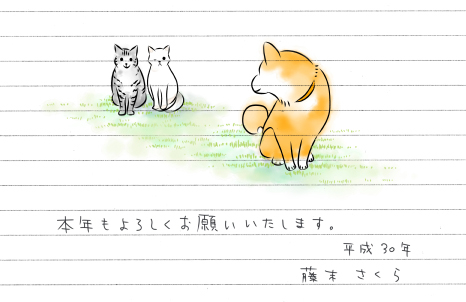 本年もよろしくお願いいたします。
平成30年
藤末 さくら